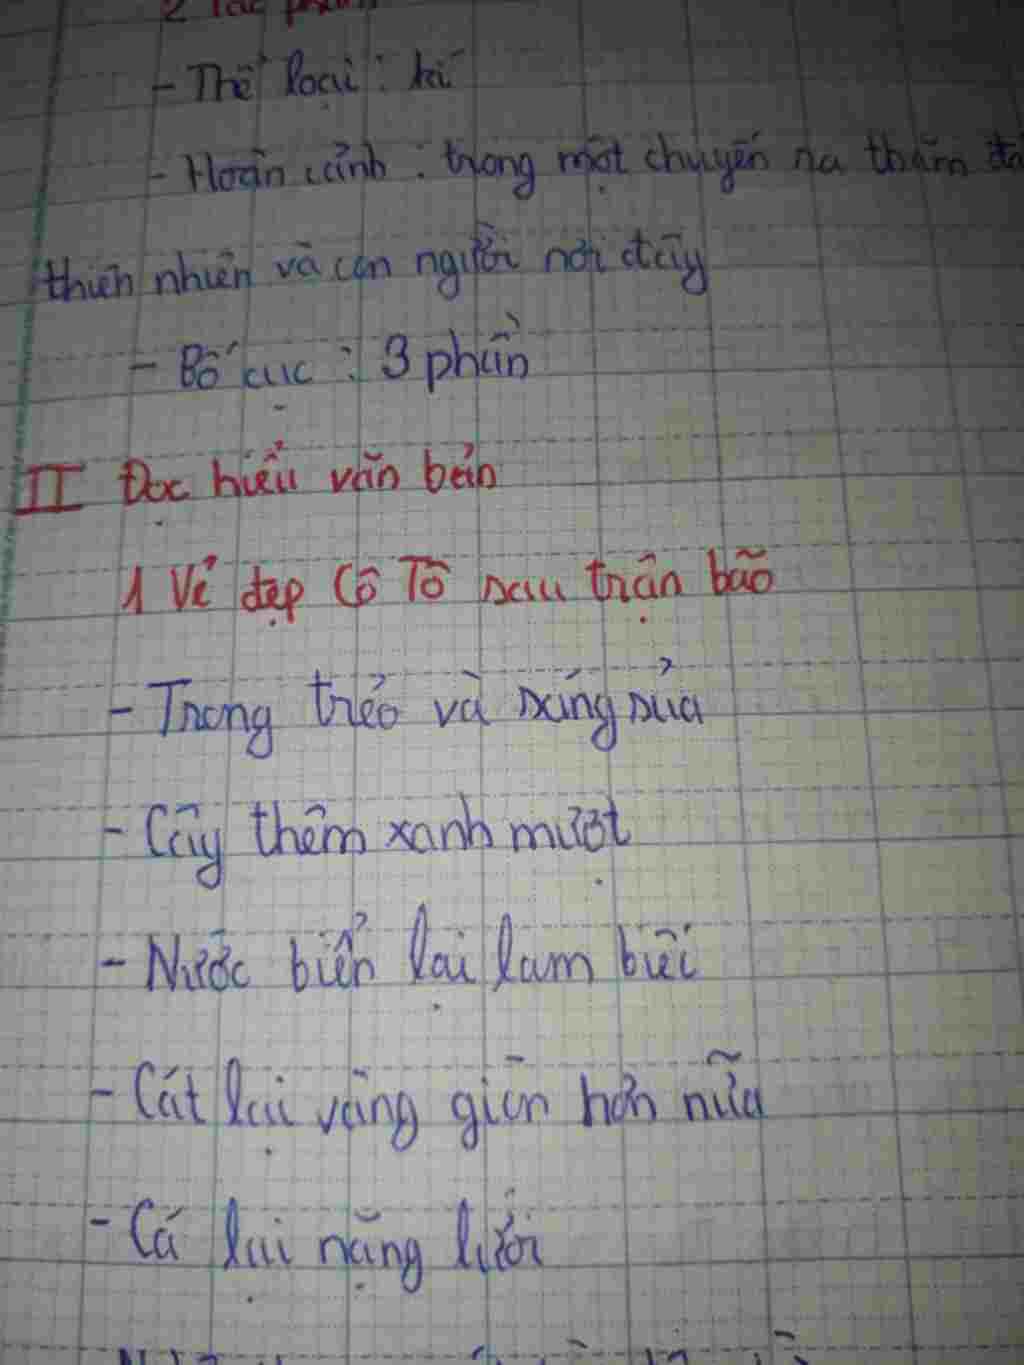 2 Tác phẩm
- Thể loại : kí
- Hoàn cảnh : trong một chuyến ra thăm
thiên nhiên và con người nơi đây
- Bố cục : 3 phần
II Đọc hiểu văn bản
1 Vẻ đẹp Cô Tô sau trận bão
- Trong trẻo và sáng sủa
- Cây thêm xanh mượt
- Nước biển lại lam biếc
- Cát lại vàng giòn hơn nữa
- Cá lại nặng lưới